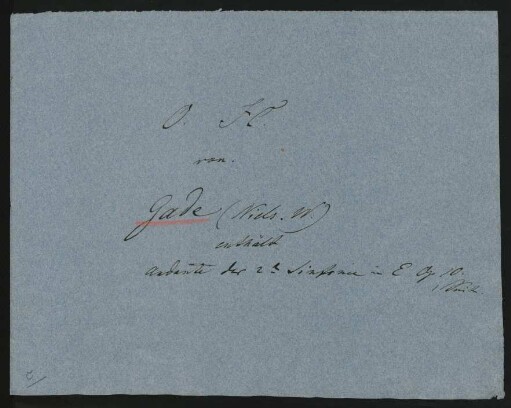 von
Gade (Niels. W.)
enthält
Andante der 2t Sinfonie in E Op 10.